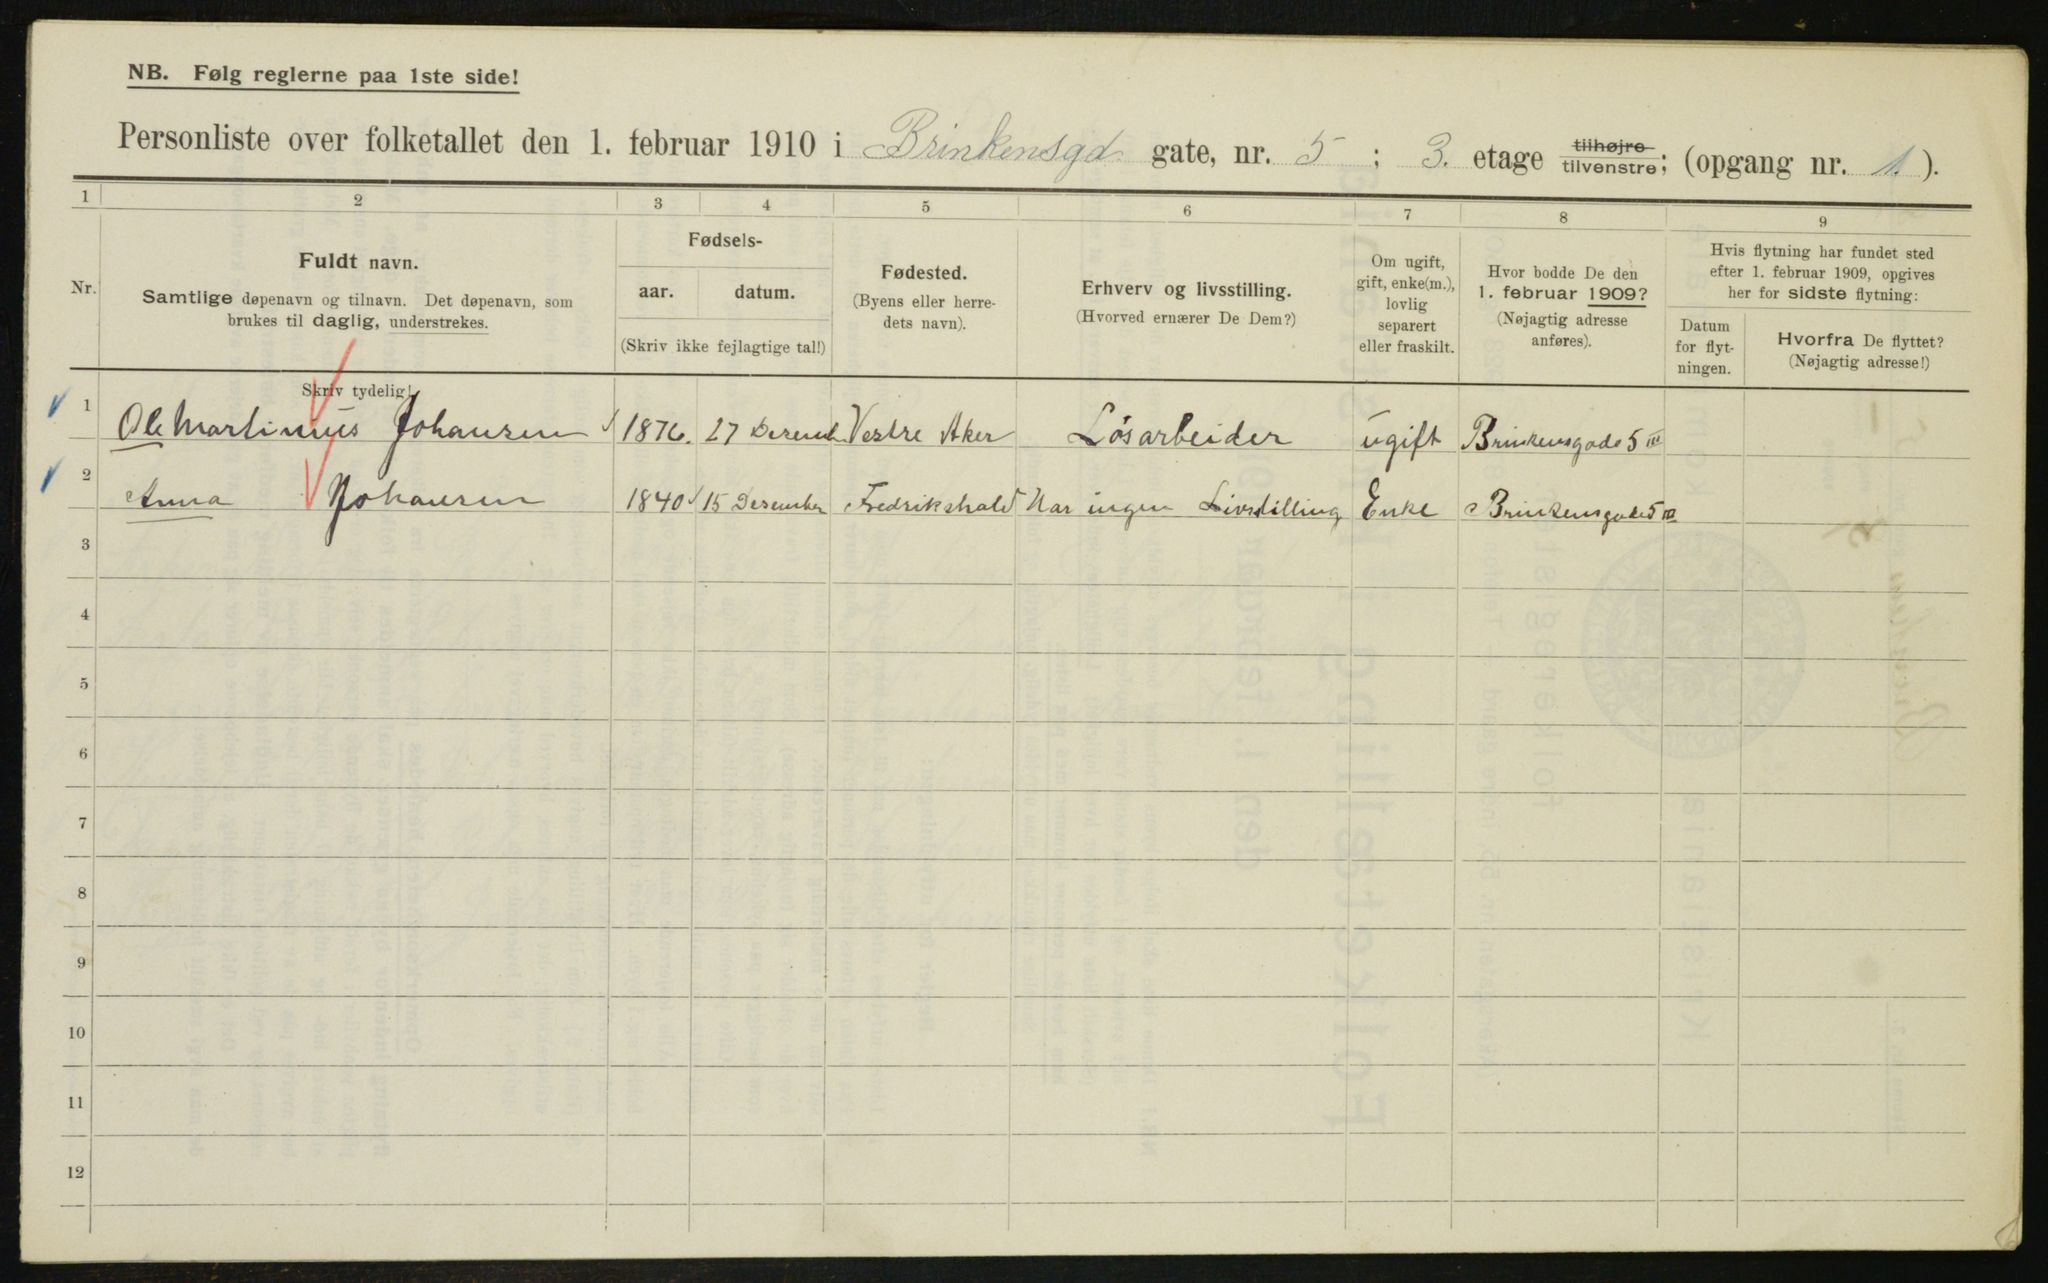 NB. Følg reglerne paa 1ste side!
Personliste over folketallet den 1. februar 1910 i Brinkensgd gate, nr. 5 ; 3. etage tilhøjre tilvenstre; (opgang nr. 1. ).
1 2 3 4 5 6 7 8 9
Nr.
Fuldt navn.
Samtlige døpenavn og tilnavn. Det døpenavn, som
brukes til daglig, understrekes.
Skriv tydelig!
Fødsels-
aar. datum.
(Skriv ikke fejlagtige tal!)
Fødested.
(Byens eller herre-
dets navn).
Erhverv og livsstilling.
(Hvorved ernærer De Dem?)
Om ugift,
gift, enke(m.),
lovlig
separert
eller fraskilt.
Hvor bodde De den
1. februar 1909?
(Nøjagtig adresse
anføres).
Hvis flytning har fundet sted
efter 1. februar 1909, opgives
her for sidste flytning:
Datum
for flyt-
ningen.
Hvorfra De flyttet?
(Nøjagtig adresse!)
1 Ole Martinius Johansen 1876. 27 Desemb Vestre Aker Løsarbeider ugift Brinkensgade 5 III
2 Anna Johansen 1840 15 Desember Fredrikshald Har ingen Livstilling Enke Brinkensgade 5 III
3
4
5
6
7
8
9
10
11
12